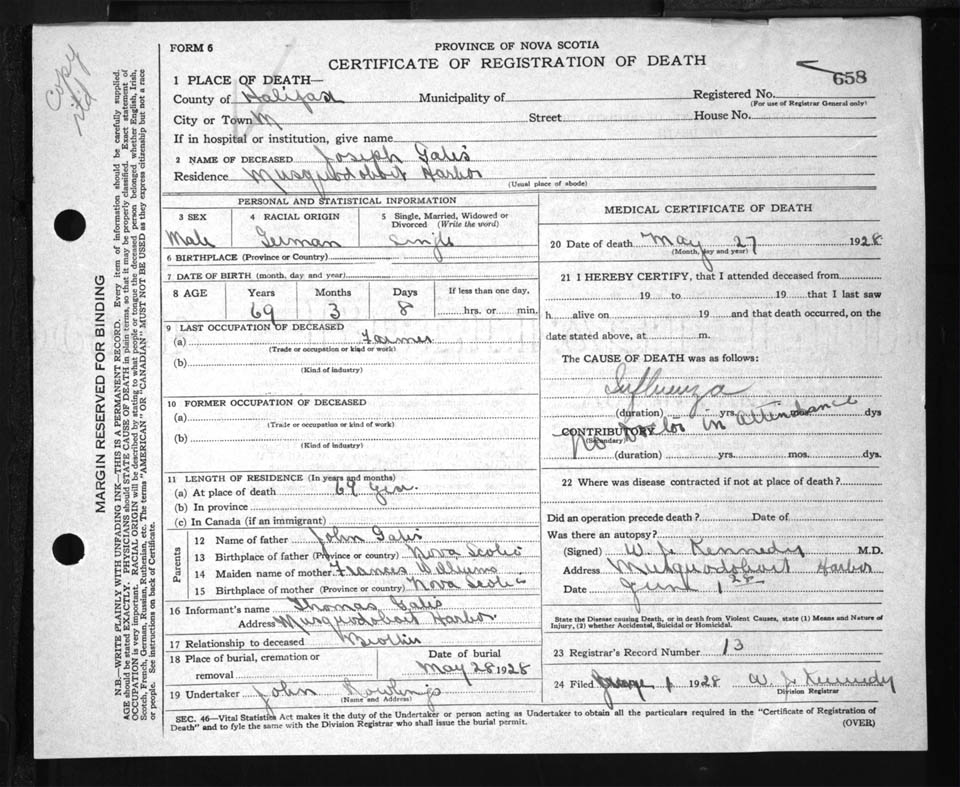 Copy
FORM 6
PROVINCE OF NOVA SCOTIA
CERTIFICATE OF REGISTRATION OF DEATH
658
1 PLACE OF DEATH—
County of Halifax Municipality of Registered No.
(For use of Registrar General only)
City or Town M Street House No.
If in hospital or institution, give name
2 NAME OF DECEASED Joseph Gates
Residence Musquodobit Harbor
(Usual place of abode)
PERSONAL AND STATISTICAL INFORMATION
3 SEX 4 RACIAL ORIGIN 5 Single, Married, Widowed or Divorced (Write the word)
Male German Single
6 BIRTHPLACE (Province or Country)
7 DATE OF BIRTH (month, day and year)
8 AGE Years Months Days If less than one day,
69 3 8 hrs. or min.
9 LAST OCCUPATION OF DECEASED
(a) Farmer
(Trade or occupation or kind or work)
(b)
(Kind of industry)
10 FORMER OCCUPATION OF DECEASED
(a)
(Trade or occupation or kind of work)
(b)
(Kind of industry)
11 LENGTH OF RESIDENCE (In years and months)
(a) At place of death 69 yrs.
(b) In province
(c) In Canada (if an immigrant)
Parents
12 Name of father John Gates
13 Birthplace of father (Province or country) Nova Scotia
14 Maiden name of mother Frances Williams
15 Birthplace of mother (Province or country) Nova Scotia
16 Informant's name Thomas Gates
Address Musquodobit Harbor
17 Relationship to deceased Brother
18 Place of burial, cremation or removal Date of burial
May 28 1928
19 Undertaker John Rowlings
(Name and Address)
MEDICAL CERTIFICATE OF DEATH
20 Date of death May 27 1928
(Month, day and year)
21 I HEREBY CERTIFY, that I attended deceased from
19 to 19 that I last saw
h alive on 19 and that death occurred, on the
date stated above, at m.
The CAUSE OF DEATH was as follows:
Influenza
(duration) yrs. dys
CONTRIBUTORY No Doctor in attendance
(Secondary)
(duration) yrs. mos. dys.
22 Where was disease contracted if not at place of death?
Did an operation precede death? Date of
Was there an autopsy?
(Signed) W. J. Kennedy M.D.
Address Musquodoboit Harbor
Date Jun 1 28
State the Disease causing Death, or in death from Violent Causes, state (1) Means and Nature of
Injury, (2) whether Accidental, Suicidal or Homicidal.
23 Registrar's Record Number 13
24 Filed June 1 1928 W. J. Kennedy
Division Registrar
SEC. 46—Vital Statistics Act makes it the duty of the Undertaker or person acting as Undertaker to obtain all the particulars required in the "Certificate of Registration of
Death" and to fyle the same with the Division Registrar who shall issue the burial permit.
(OVER)
MARGIN RESERVED FOR BINDING
N.B.—WRITE PLAINLY WITH UNFADING INK—THIS IS A PERMANENT RECORD. Every item of information should be carefully supplied.
AGE should be stated EXACTLY. PHYSICIANS should STATE CAUSE OF DEATH in plain terms, so that it may be properly classified. Exact statement of
OCCUPATION is very important. RACIAL ORIGIN will be described by stating to what people or tongue the deceased person belonged, whether English, Irish,
Scotch, French, German, Russian, Ruthenian, etc. The terms "AMERICAN" OR "CANADIAN" MUST NOT BE USED as they express citizenship but not a race
or people. See instructions on back of Certificate.